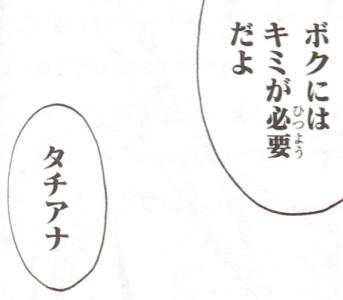 ボクには
キミが必要
だよ
タチアナ